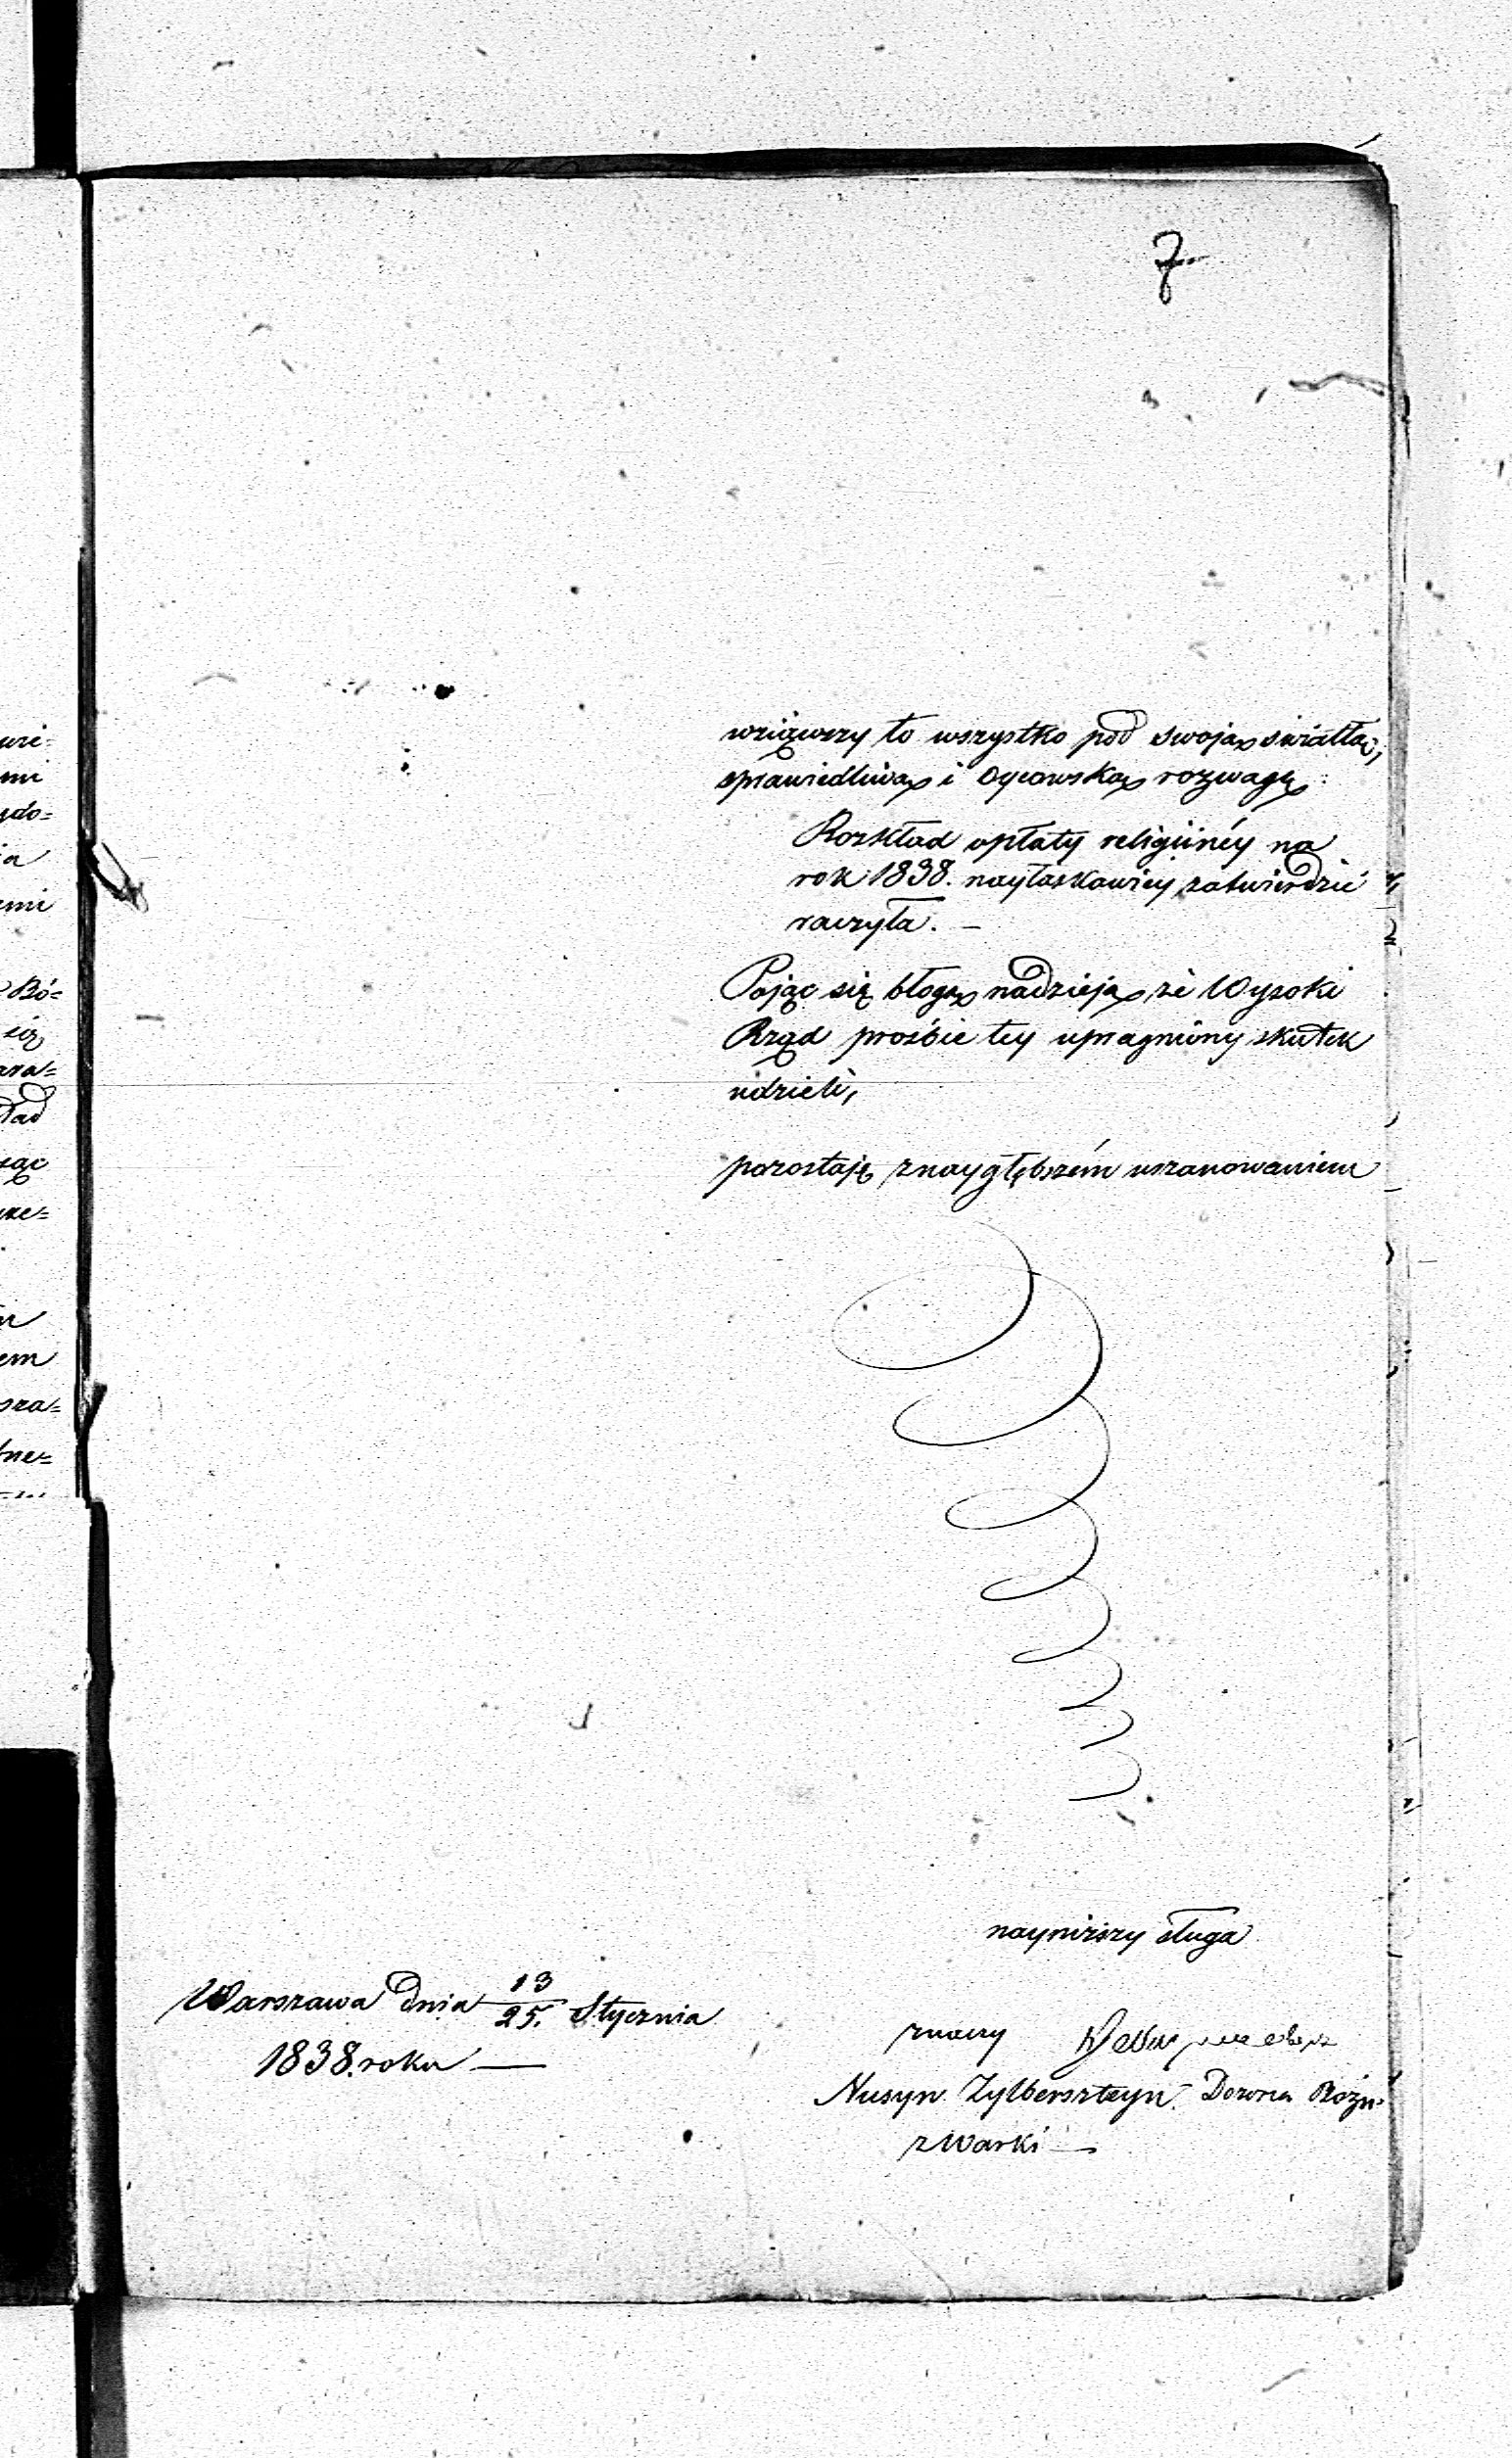 7
wziąwszy to wszystko pod swoją światłą,
sprawiedliwą i Oycowską rozwagę
Rozkład opłaty religiinéy na
rok 1838. nayłaskawiey zatwierdzić
raczyła. –
Pojąc się błogą nadzieją, że Wysoki
Rząd prośbie tey upragniony skutek
udzieli,
pozostaję z naygłębszém uszanowaniem
nayniższy sługa
Warszawa dnia 13/25. Stycznia
1838. roku —
znaczy
Nusyn Zylberszteyn Dozorca Bóżn:
z Warki —